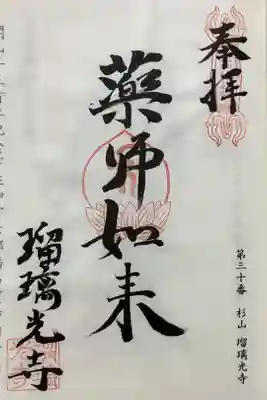 奉拝
第三十番 杉山 瑠璃光寺
薬师如来
瑠璃光寺